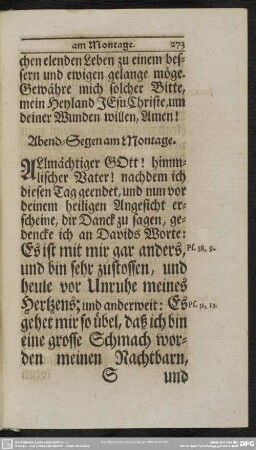 am Montage. 273
chen elenden Leben zu einem bes-
sern und ewigen gelange möge.
Gewähre mich solcher Bitte,
mein Heyland JEsu Christe, um
deiner Wunden willen, Amen!
Abend-Segen am Montage.
ALlmächtiger GOtt! himm-
lischer Vater! nachdem ich
diesen Tag geendet, und nun vor
deinem heiligen Angesicht er-
scheine, dir Danck zu sagen, ge-
dencke ich an Davids Worte:
Es ist mit mir gar anders, Ps. 38, 9.
und bin sehr zustossen, und
heule vor Unruhe meines
Hertzens; und anderweit: Es Ps. 31, 12.
gehet mir so übel, daß ich bin
eine grosse Schmach wor-
den meinen Nachtbarn,
S und